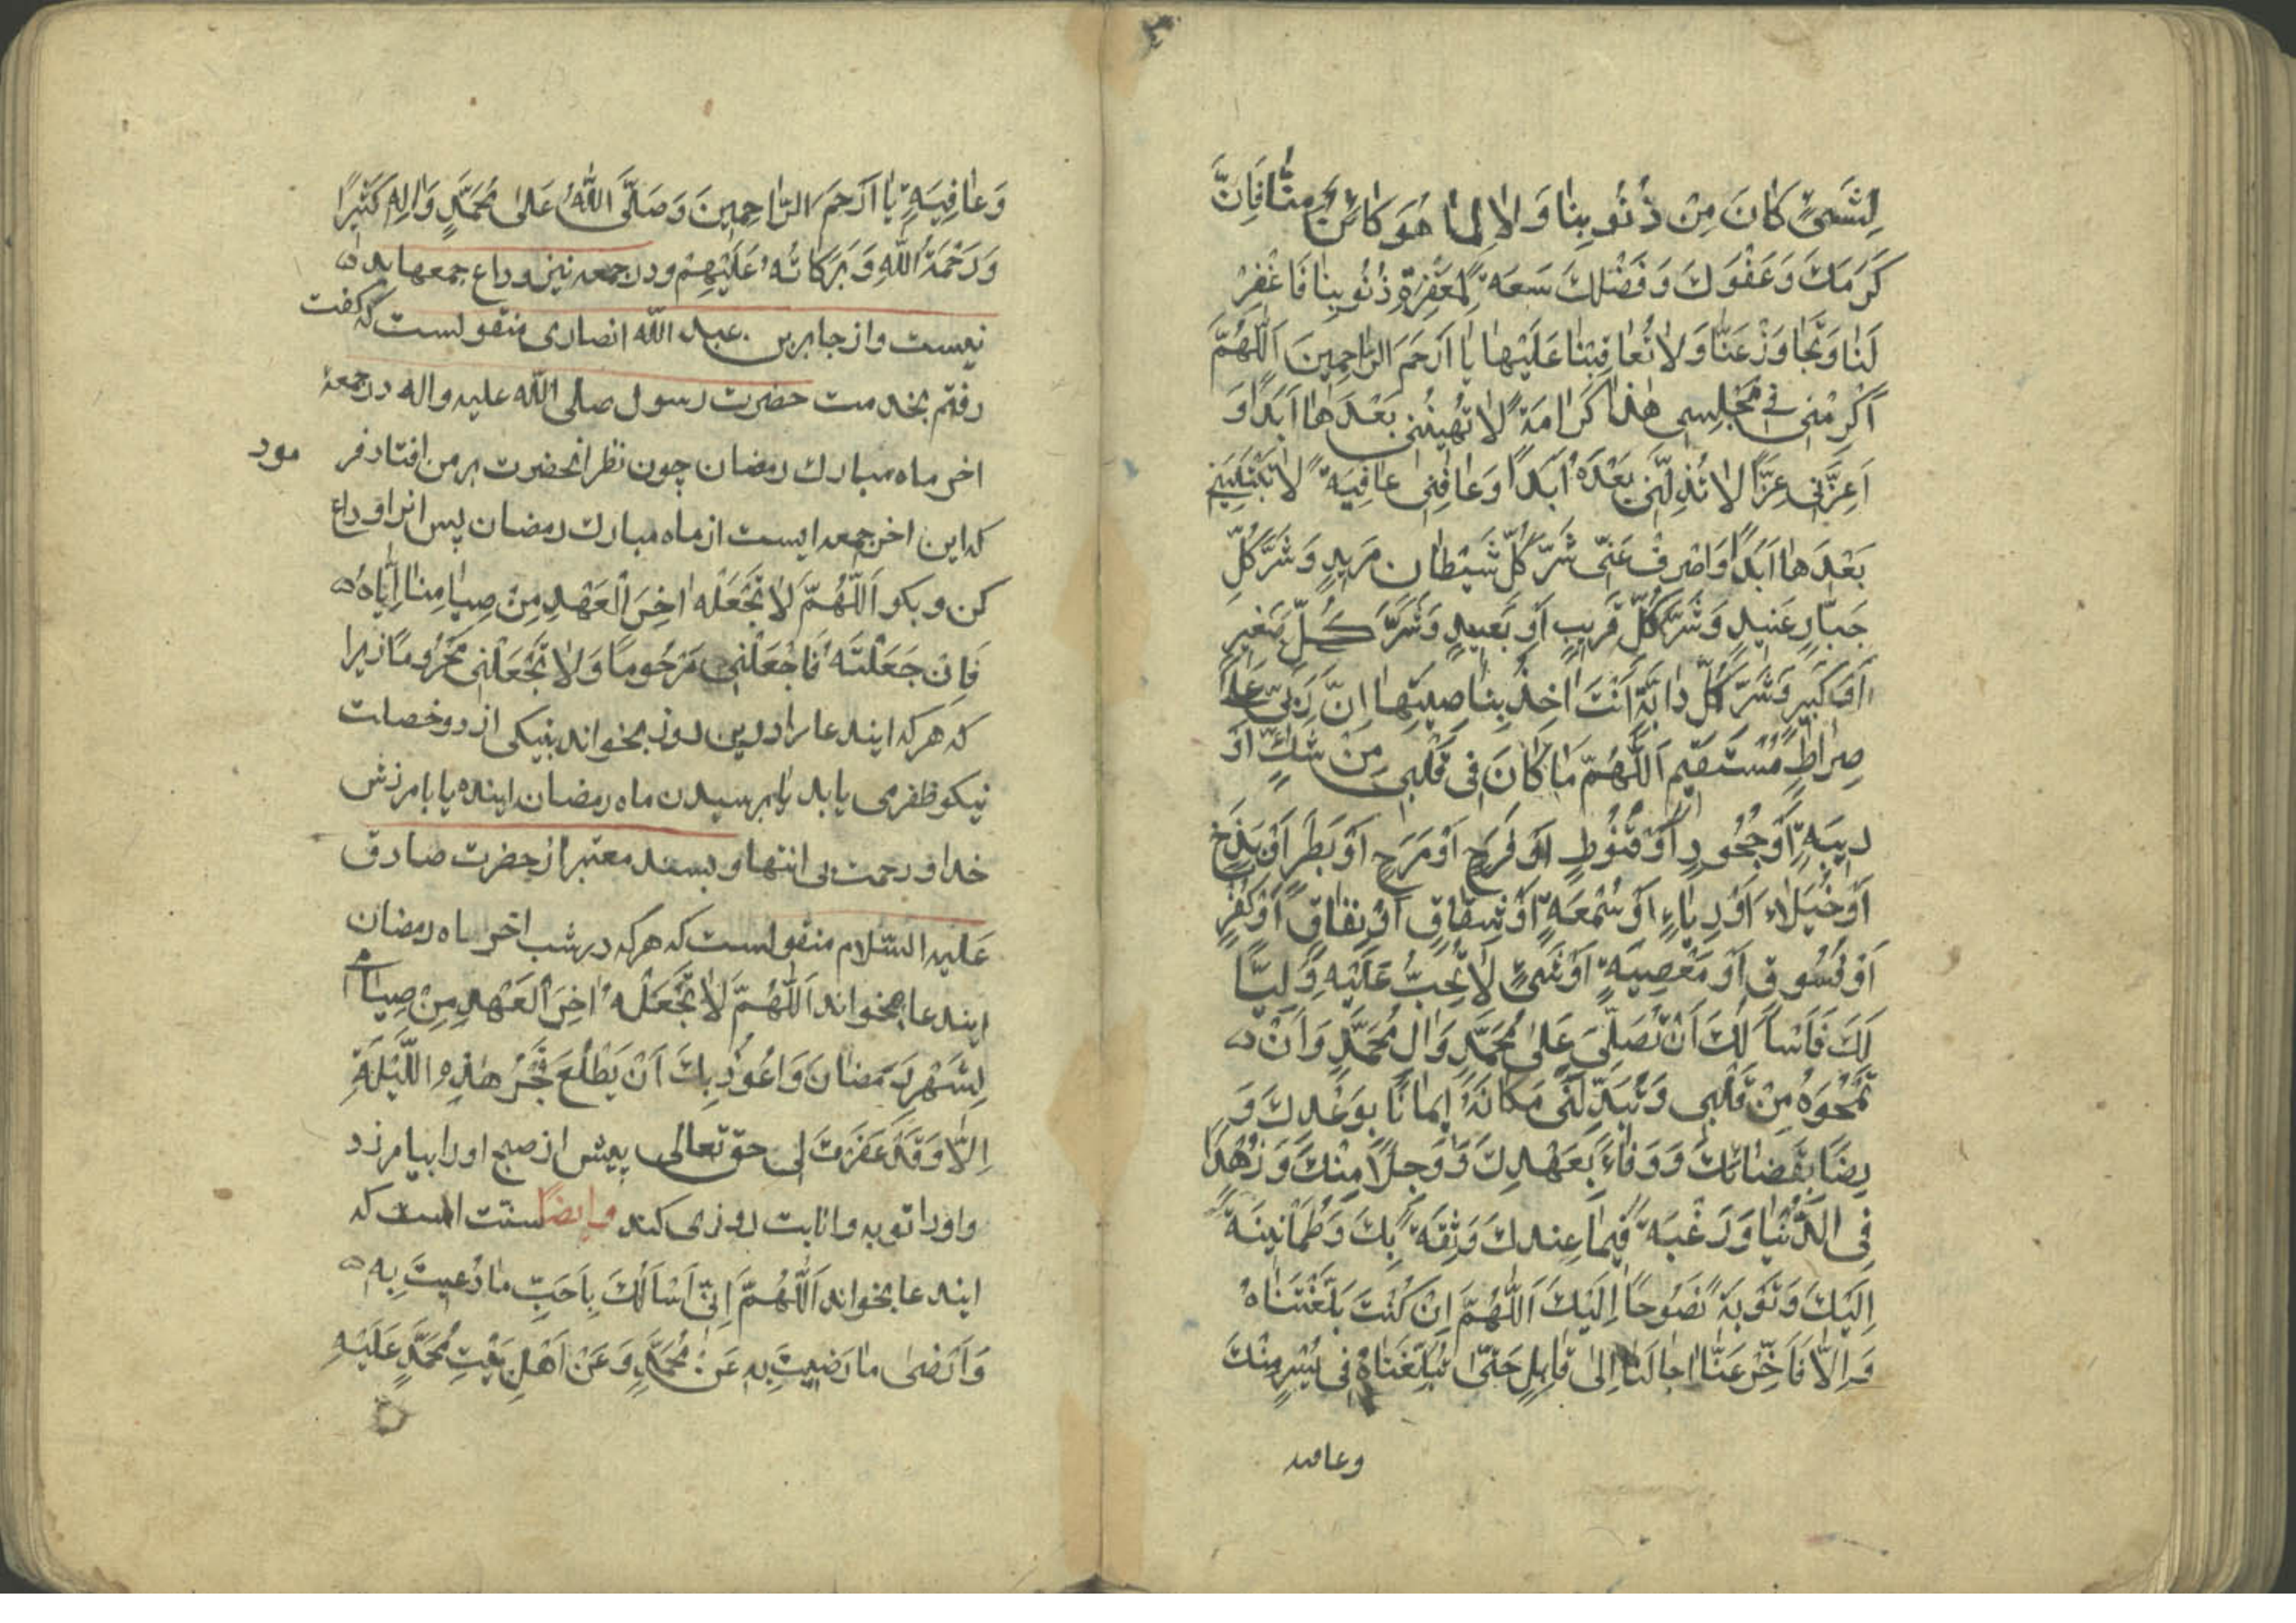 لِشَیْءٍ کَانَ مِنْ ذُنُوبِنَا وَ لَا لِمَا هُوَ کَائِنٌ مِنَّا فَاِنَّ
کَرَمَكَ وَعَفْوَكَ وَفَضْلَكَ سَعَةً لِمَغْفِرَةِ ذُنُوبِنَا فَاغْفِرْ
لَنَا وَتَجَاوَزْ عَنَّا وَلَا تُعَاقِبْنَا عَلَیْهَا یَا اَرْحَمَ الرَّاحِمِینَ اَللّٰهُمَّ
اَکْرِمْنِی فِی مَجْلِسِی هٰذَا کَرَامَةً لَا تُهِینُنِی بَعْدَهَا اَبَدًا وَ
اَعِزَّنِی عِزًّا لَا تُذِلُّنِی بَعْدَهُ اَبَدًا وَعَافِنِی عَافِیَةً لَا تَبْتَلِیَنِی
بَعْدَهَا اَبَدًا وَاصْرِفْ عَنِّی شَرَّ کُلِّ شَیْطَانٍ مَرِیدٍ وَشَرَّ کُلِّ
جَبَّارٍ عَنِیدٍ وَشَرَّ کُلِّ قَرِیبٍ اَوْ بَعِیدٍ وَشَرَّ کُلِّ صَغِیرٍ
اَوْ کَبِیرٍ وَشَرَّ کُلِّ دَابَّةٍ اَنْتَ اٰخِذٌ بِنَاصِیَتِهَا اِنَّ رَبِّی عَلٰی
صِرَاطٍ مُسْتَقِیمٍ اَللّٰهُمَّ مَا کَانَ فِی قَلْبِی مِنْ شَكٍّ اَوْ
رِیبَةٍ اَوْ جُحُودٍ اَوْ قُنُوطٍ اَوْ فَرَحٍ اَوْ مَرَحٍ اَوْ بَطَرٍ اَوْ بَذَخٍ
اَوْ خُیَلَاءَ اَوْ رِیَاءٍ اَوْ سُمْعَةٍ اَوْ شِقَاقٍ اَوْ نِفَاقٍ اَوْ کُفْرٍ
اَوْ فُسُوقٍ اَوْ مَعْصِیَةٍ اَوْ شَیْءٍ لَا تُحِبُّ عَلَیْهِ وَلِیًّا
لَكَ فَاَسْاَلُكَ اَنْ تُصَلِّیَ عَلٰی مُحَمَّدٍ وَاٰلِ مُحَمَّدٍ وَاَنْ
تَمْحُوَهُ مِنْ قَلْبِی وَتُبَدِّلَنِی مَکَانَهُ اِیمَانًا بِوَعْدِكَ وَ
رِضًا بِقَضَائِكَ وَوَفَاءً بِعَهْدِكَ وَوَجِلًا مِنْكَ وَزُهْدًا
فِی الدُّنْیَا وَرَغْبَةً فِیمَا عِنْدَكَ وَثِقَةً بِكَ وَطُمَاْنِینَةً
اِلَیْكَ وَتَوْبَةً نَصُوحًا اِلَیْكَ اَللّٰهُمَّ اِنْ کُنْتَ بَلَّغْتَنَاهُ
وَ اِلَّا فَاَخِّرْ عَنَّا اٰجَالَنَا اِلٰی قَابِلٍ حَتّٰی تُبَلِّغَنَاهُ فِی یُسْرٍ مِنْكَ
وعافیه
وَعَافِیَةٍ یَا اَرْحَمَ الرَّاحِمِینَ وَصَلَّی اللّٰهُ عَلٰی مُحَمَّدٍ وَاٰلِهِ کَثِیرًا
وَرَحْمَةُ اللّٰهِ وَبَرَکَاتُهُ عَلَیْهِمْ و در جمعه نیز وداع جمعها بد
نیست و از جابر بن عبد الله انصاری منقولست که گفت
رفتم بخدمت حضرت رسول صلی الله علیه و اله در جمعهٔ
اخر ماه مبارك رمضان چون نظر انحضرت بر من افتاد فر
مود
که این اخر جمعه ایست از ماه مبارك رمضان پس انرا وداع
کن و بگو اَللّٰهُمَّ لَا تَجْعَلْهُ اٰخِرَ الْعَهْدِ مِنْ صِیَامِنَا اِیَّاهُ
فَاِنْ جَعَلْتَهُ فَاجْعَلْنِی مَرْحُومًا وَلَا تَجْعَلْنِی مَحْرُومًا زیرا
که هر که ایندعا را در این روز بخواند بیکی از دو خصلت
نیکو ظفر می یابد یا برسیدن ماه رمضان اینده یا بامرزش
خدا و رحمت بی انتها و بسند معتبر از حضرت صادق
علیه السّلام منقولست که هر که در شب اخر ماه رمضان
ایندعا بخواند اَللّٰهُمَّ لَا تَجْعَلْهُ اٰخِرَ الْعَهْدِ مِنْ صِیَامِی
لِشَهْرِ رَمَضَانَ وَاَعُوذُ بِكَ اَنْ یَطْلُعَ فَجْرُ هٰذِهِ اللَّیْلَةِ
اِلَّا وَقَدْ غَفَرْتَ لِی حق تعالی پیش از صبح او را بیامرزد
و او را توبه و انابت روزی کند و ایضاً سنّت است که
ایندعا بخواند اَللّٰهُمَّ اِنِّی اَسْاَلُكَ بِاَحَبِّ مَا دُعِیتَ بِهِ
وَاَرْضٰی مَا رَضِیتَ بِهِ عَنْ مُحَمَّدٍ وَعَنْ اَهْلِ بَیْتِ مُحَمَّدٍ عَلَیْهِ